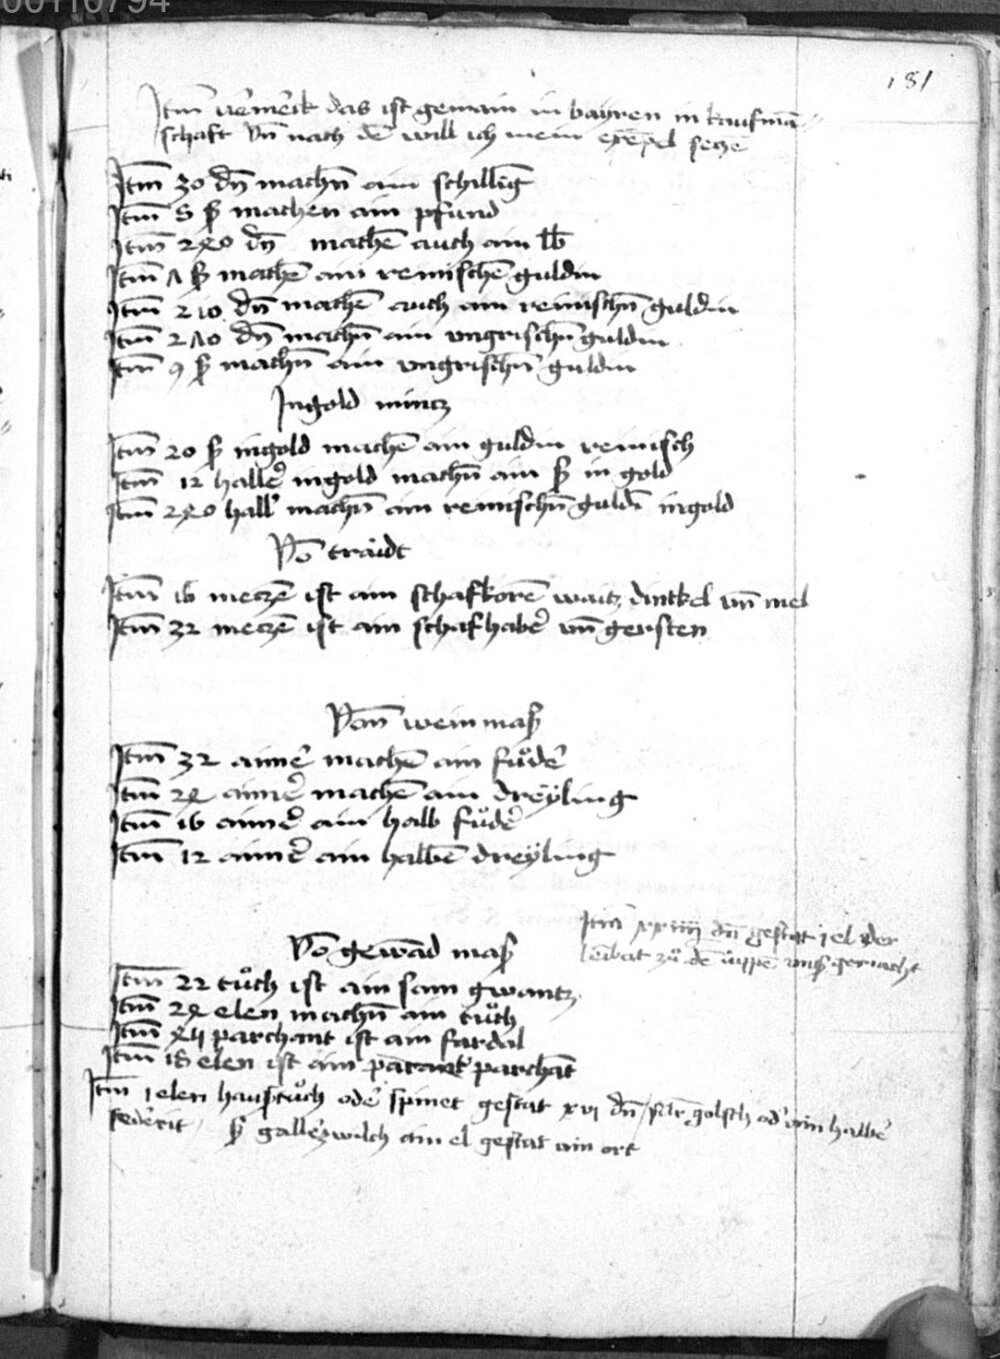 00110794
181
Itm̄ v̄ermerk das ist gemain in bayren in kaufmā
schaft vn̄ nach dē will ich mein exēpel seczē
Itm̄ 30 dn̄ machn̄ ain schilling
Itm̄ 8 ß machen ain pfund
Itm̄ 240 dn̄ machē auch ain lb
Itm̄ 7 ß machē ain reinischē guldin
Itm̄ 210 dn̄ machē auch ain reinischn̄ guldin
Itm̄ 270 dn̄ machn̄ ain vngrischn̄ guldin
Itm̄ 9 ß machn̄ ain vngrischn̄ guldin
In gold müncz
Itm̄ 20 ß in gold machē ain guldin reinisch
Itm̄ 12 haller in gold machn̄ ain ß in gold
Itm̄ 240 hall' machn̄ ain reinischn̄ guldī in gold
Vō traidt
Itm̄ 16 meczē ist ain schaf korē waitz dinkel vn̄ mel
Itm̄ 32 meczē ist ain schaf haber vn̄ gersten
Von wein maß
Itm̄ 32 aimer machē ain fuder
Itm̄ 24 aimer machē ain dreyling
Itm̄ 16 aimer ain halb fuder
Itm̄ 12 aimer ain halbē dreyling
Itm̄ xxiiij dn̄ gestat 1 el der
Vō gewād maß
Itm̄ 22 tuch ist ain sam gwantz
Itm̄ 24 elen machn̄ ain tuch
Itm̄ 45 parchant ist ain fardal
Itm̄ 18 elen ist ain parchāt
Itm̄ 1 elen haußtuch oder spinet gestat xvj dn̄ golsch od' ain halbē
ß ain el gestat ain ort